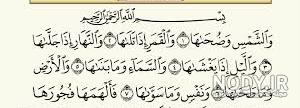 بِسْمِ اللَّهِ الرَّحْمَٰنِ الرَّحِيمِ
وَالشَّمْسِ وَضُحَىٰهَا ١ وَالْقَمَرِ إِذَا تَلَىٰهَا ٢ وَالنَّهَارِ إِذَا جَلَّىٰهَا
٣ وَالَّيْلِ إِذَا يَغْشَىٰهَا ٤ وَالسَّمَاءِ وَمَا بَنَىٰهَا ٥ وَالْأَرْضِ
وَمَا طَحَىٰهَا ٦ وَنَفْسٍ وَمَا سَوَّىٰهَا ٧ فَأَلْهَمَهَا فُجُورَهَا